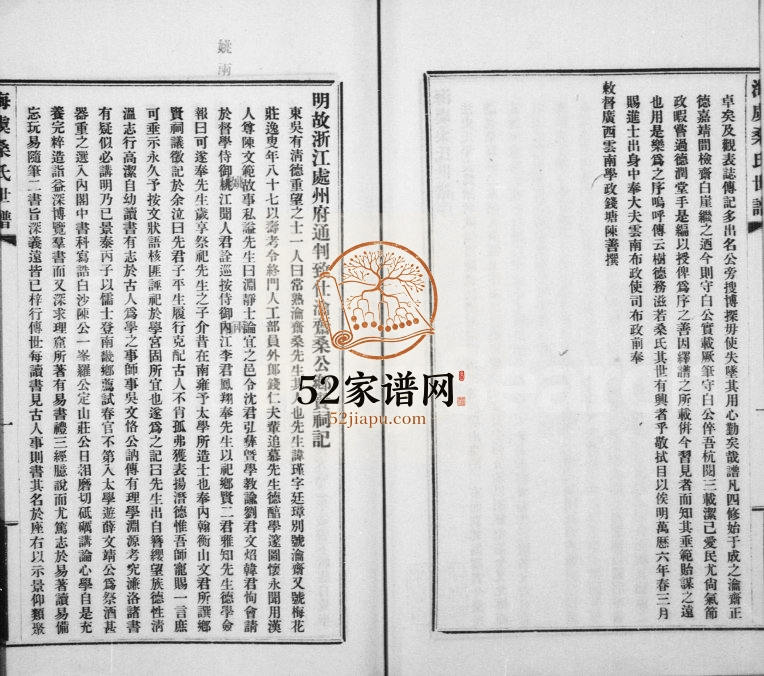 海虞桑氏世譜
卓矣及觀表誌傳記多出名公旁搜博探毋使失墜其用心勤矣哉譜凡四修始于成之瀹齋正
德嘉靖間檢齋白崖繼之迺今則守白公實載厥筆守白公倅吾杭閱三載潔己愛民尤尚氣節
政暇嘗過德潤堂手是編以授俾爲序之善因繹譜之所載併今習見者而知其垂範貽謀之遠
也用是樂爲之序嗚呼傳云樹德務滋若桑氏其世有興者乎敬拭目以俟明萬曆六年春三月
賜進士出身中奉大夫雲南布政使司布政前奉
敕督廣西雲南學政錢塘陳善撰
明故浙江處州府通判致仕瀹齋桑公鄉賢祠記
東吳有清德重望之士一人曰常熟瀹齋桑先生其人也先生諱瑾字廷璋別號瀹齋又號梅花
莊逸叟年八十七以壽考令終門人工部員外郎錢仁夫輩追慕先生德醅學邃圖懷永聞用漢
人尊陳文範故事私謚先生曰淵靜士論宜之邑令沈君弘彝暨學教諭劉君文焰韓君恂會請
於督學侍御姚江聞人君詮巡按侍御內江李君鳳翔奉先生以祀鄉賢二君雅知先生德學僉
報曰可遂奉先生歲享祭祀先生之子介昔在南雍予太學所造士也奉內翰衡山文君所譔鄉
賢祠議徵記於余泣曰先君子平生履行克配古人不肖孤弗獲表揚潛德惟吾師寵賜一言庶
可垂示永久予按文狀語核匪誣祀於學宮固所宜也遂爲之記曰先生出自簪纓望族德性清
溫志行高潔自幼讀書有志於古人爲學之事師事吳文恪公訥傳有理學淵源考究濂洛諸書
有疑似必講明乃已景泰丙子以儒士登南畿鄉薦試春官不第入太學遊薛文靖公爲祭酒甚
器重之選入內閣中書科寫誥白沙陳公一峯羅公定山莊公日相磨切砥礪講論心學自是充
養完粹造詣益深博覽羣書而又深求理窟所著有易書禮三經臆說而尤篤志於易著讀易備
忘玩易隨筆二書旨深義遠皆已梓行傳世每讀書見古人事則書其名於座右以示景仰類聚
海虞桑氏世譜
一
姚 兩
52家谱网
52jiapu.com